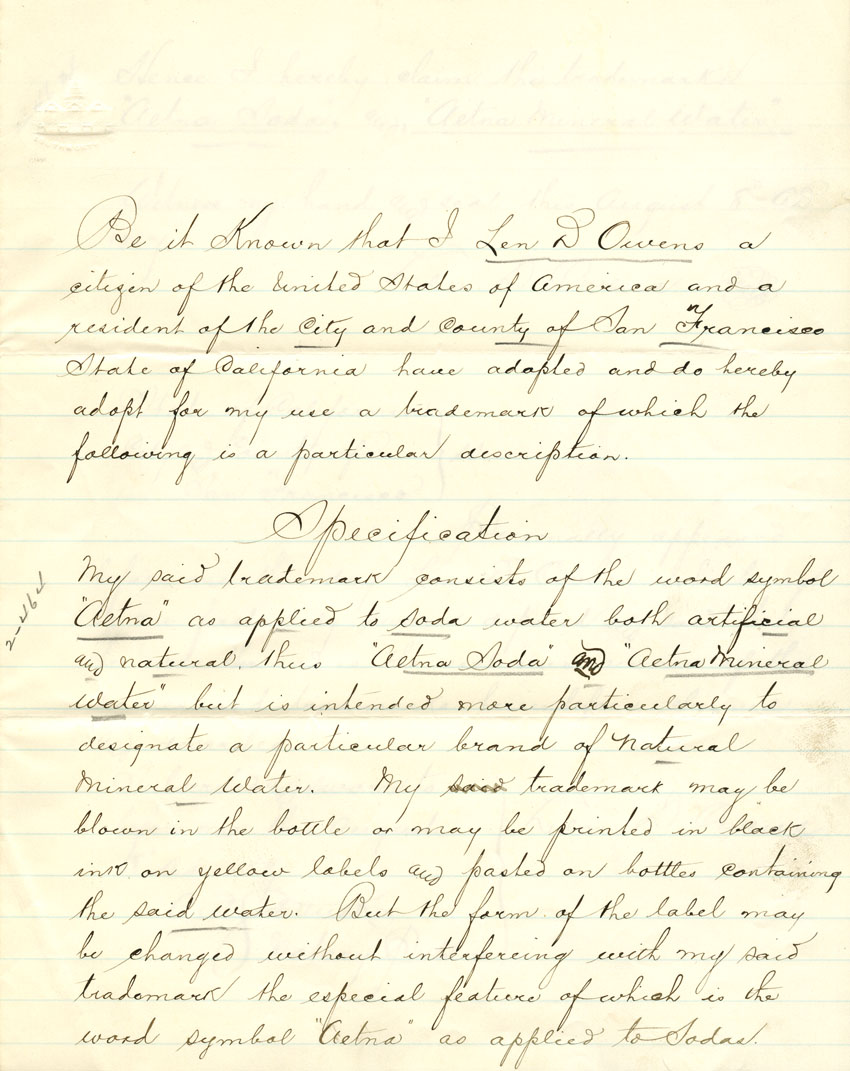 Be it Known that I Len D Owens a
citizen of the United States of America and a
resident of the City and County of San Francisco
State of California have adopted and do hereby
adopt for my use a trademark of which the
following is a particular description.
Specification
My said trademark consists of the word symbol
"Aetna" as applied to soda water both artificial
and natural. thus "Aetna Soda" and "Aetna Mineral
Water" but is intended more particularly to
designate a particular brand of Natural
Mineral Water. My said trademark may be
blown in the bottle or may be printed in black
ink on yellow labels and pasted on bottles containing
the said water. But the form of the label may
be changed without interfereing with my said
trademark the especial feature of which is the
word symbol "Aetna" as applied to Sodas.
2-464